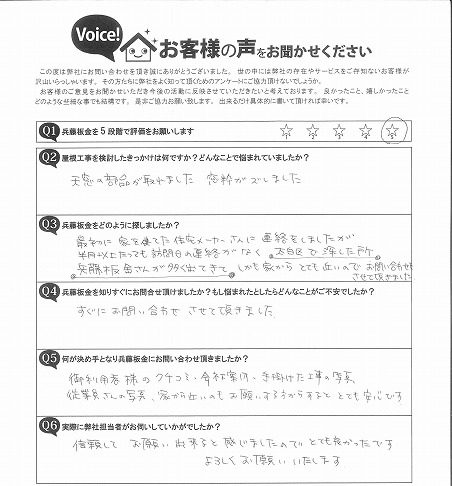 Voice!
お客様の声をお聞かせください
この度は弊社にお問い合わせを頂き誠にありがとうございました。世の中には弊社の存在やサービスをご存知ないお客様が
沢山いらっしゃいます。その方たちに弊社をよく知って頂くためのアンケートにご協力頂けないでしょうか。
お客様のご意見をお聞かせいただき今後の活動に反映させていただきたいと考えております。良かったこと、嬉しかったこと
どのような些細な事でも結構です。是非ご協力お願い致します。出来るだけ具体的に書いて頂ければ幸いです。
Q1 兵藤板金を5段階で評価をお願いします ☆ ☆ ☆ ☆ ☆
Q2 屋根工事を検討したきっかけは何ですか？どんなことで悩まれていましたか？
天窓の部品が取れました 窓枠がズレました
Q3 兵藤板金をどのように探しましたか？
最初に家を建てた住宅メーカーさんに連絡をしましたが
半月以上たっても訪問日の連絡がなく
兵藤板金さんが多く出てきて しかも家からとても近いのでお問い合わせを
させて頂きました
Q4 兵藤板金を知りすぐにお問合せ頂けましたか？もし悩まれたとしたらどんなことがご不安でしたか？
すぐにお問い合わせさせて頂きました
Q5 何が決め手となり兵藤板金にお問い合わせ頂きましたか？
御利用者様のクチコミ、会社案内、手掛けた工事の写真、
従業員さんの写真、家から近いのもお願いするうからするととても安心です
Q6 実際に弊社担当者がお伺いしていかがでしたか？
信頼して お願い出来ると感じましたのでとても良かったです
よろしくお願いいたします